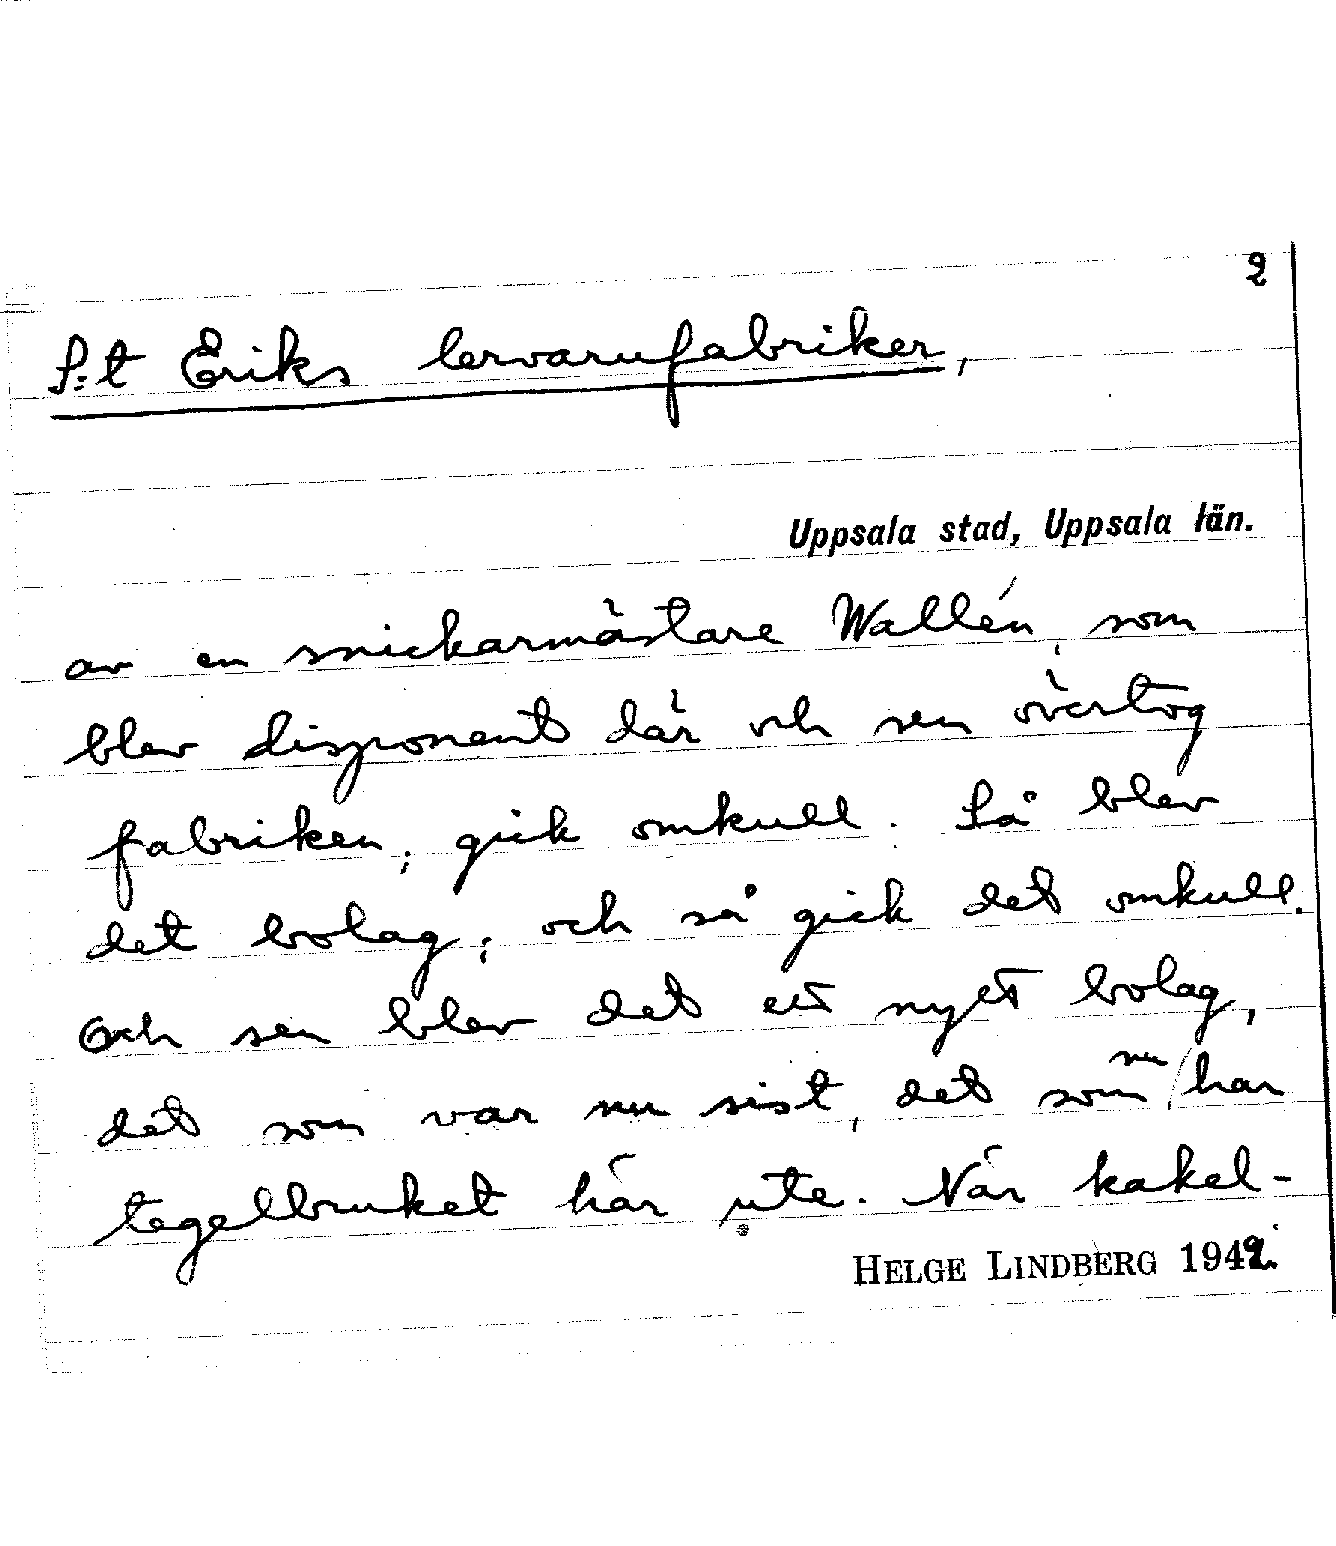 2
S:t Eriks lervarufabriker,
Uppsala stad, Uppsala län.
av en snickarmästare Wallén, som
blev disponent där och sen övertog
fabriken; gick omkull. Så blev
det bolag; och så gick det omkull.
Och sen blev det ett nytt bolag,
det som var nu sist, det som nu har
tegelbruket här ute. När kakel-
HELGE LINDBERG 1942.